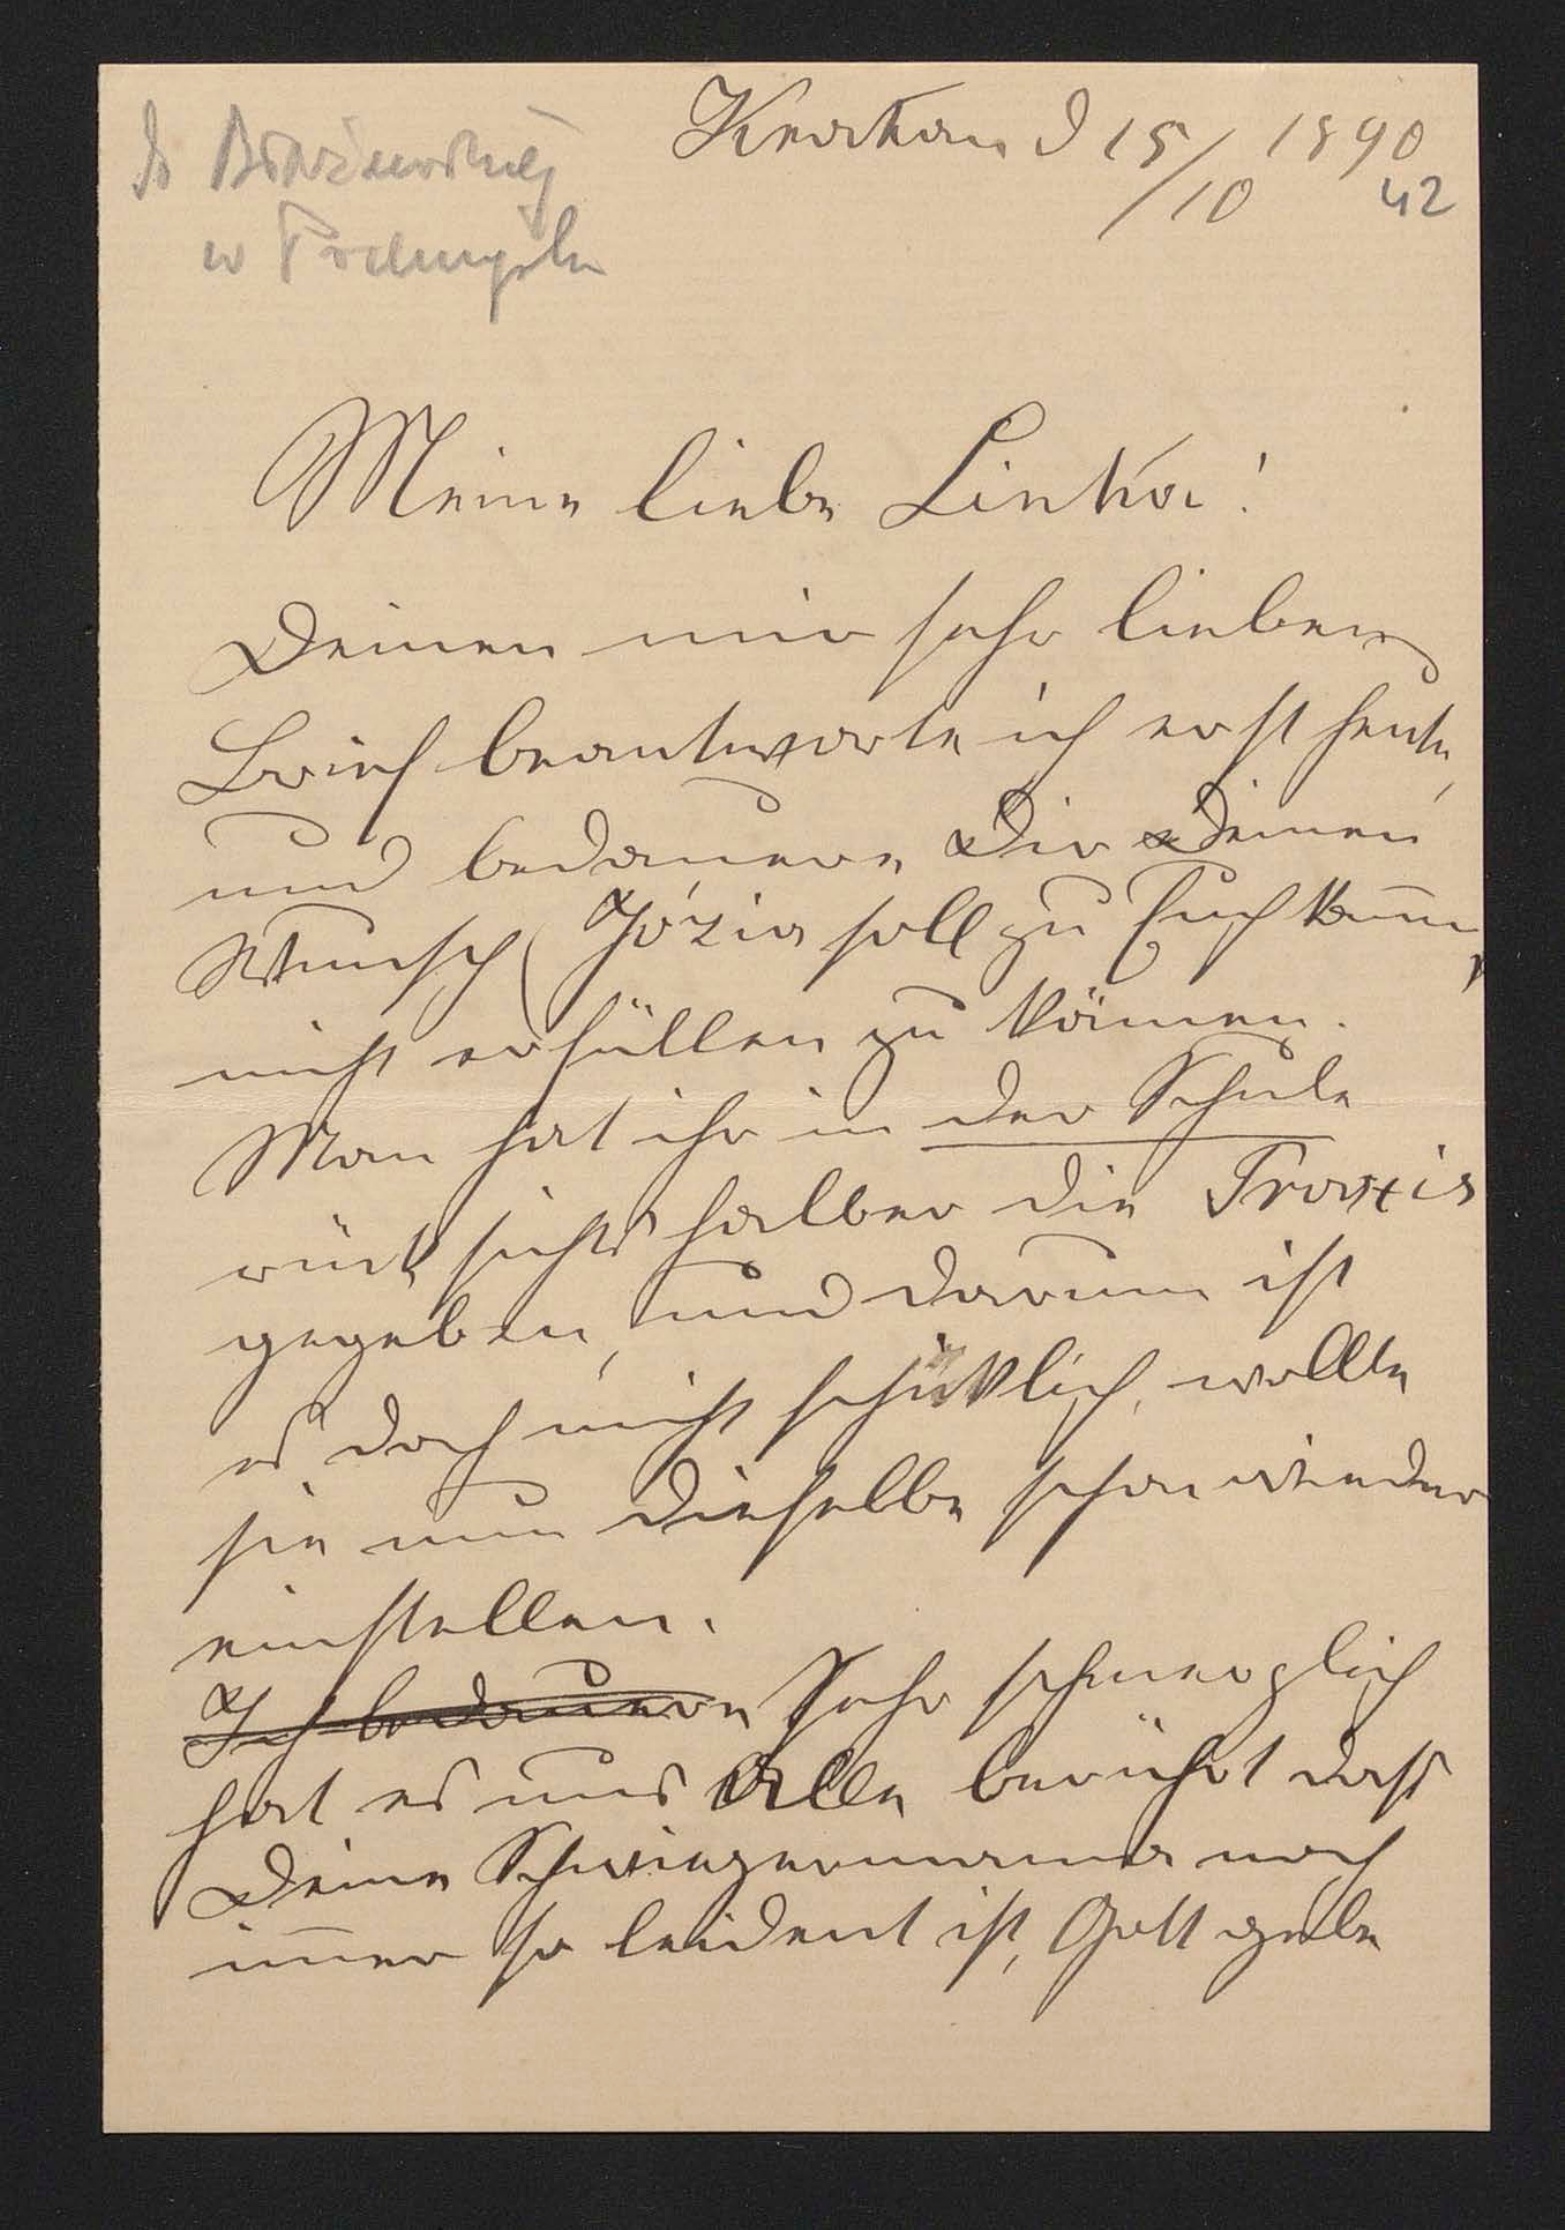 Krakau d 15/10 1890
42
w Przemyślu
Meine liebe Linka!
Deinen mir sehr lieben
Brief beantworte ich erst heute,
und bedauere Dir Deinen
Wunsch (Józia soll zu Euch kom̅en)
nicht erfüllen zu können.
Man hat ihr in der Schule
rücksichtshalber die Praxis
gegeben, und darum ist
es doch nicht schicklich, wollte
sie nun dieselbe schon wieder
einstellen.
Ich bedauere Sehr schmerzlich
hat es uns Alle berührt dass
Deine Schwiegermama noch
im̅er so leident ist, Gott gebe